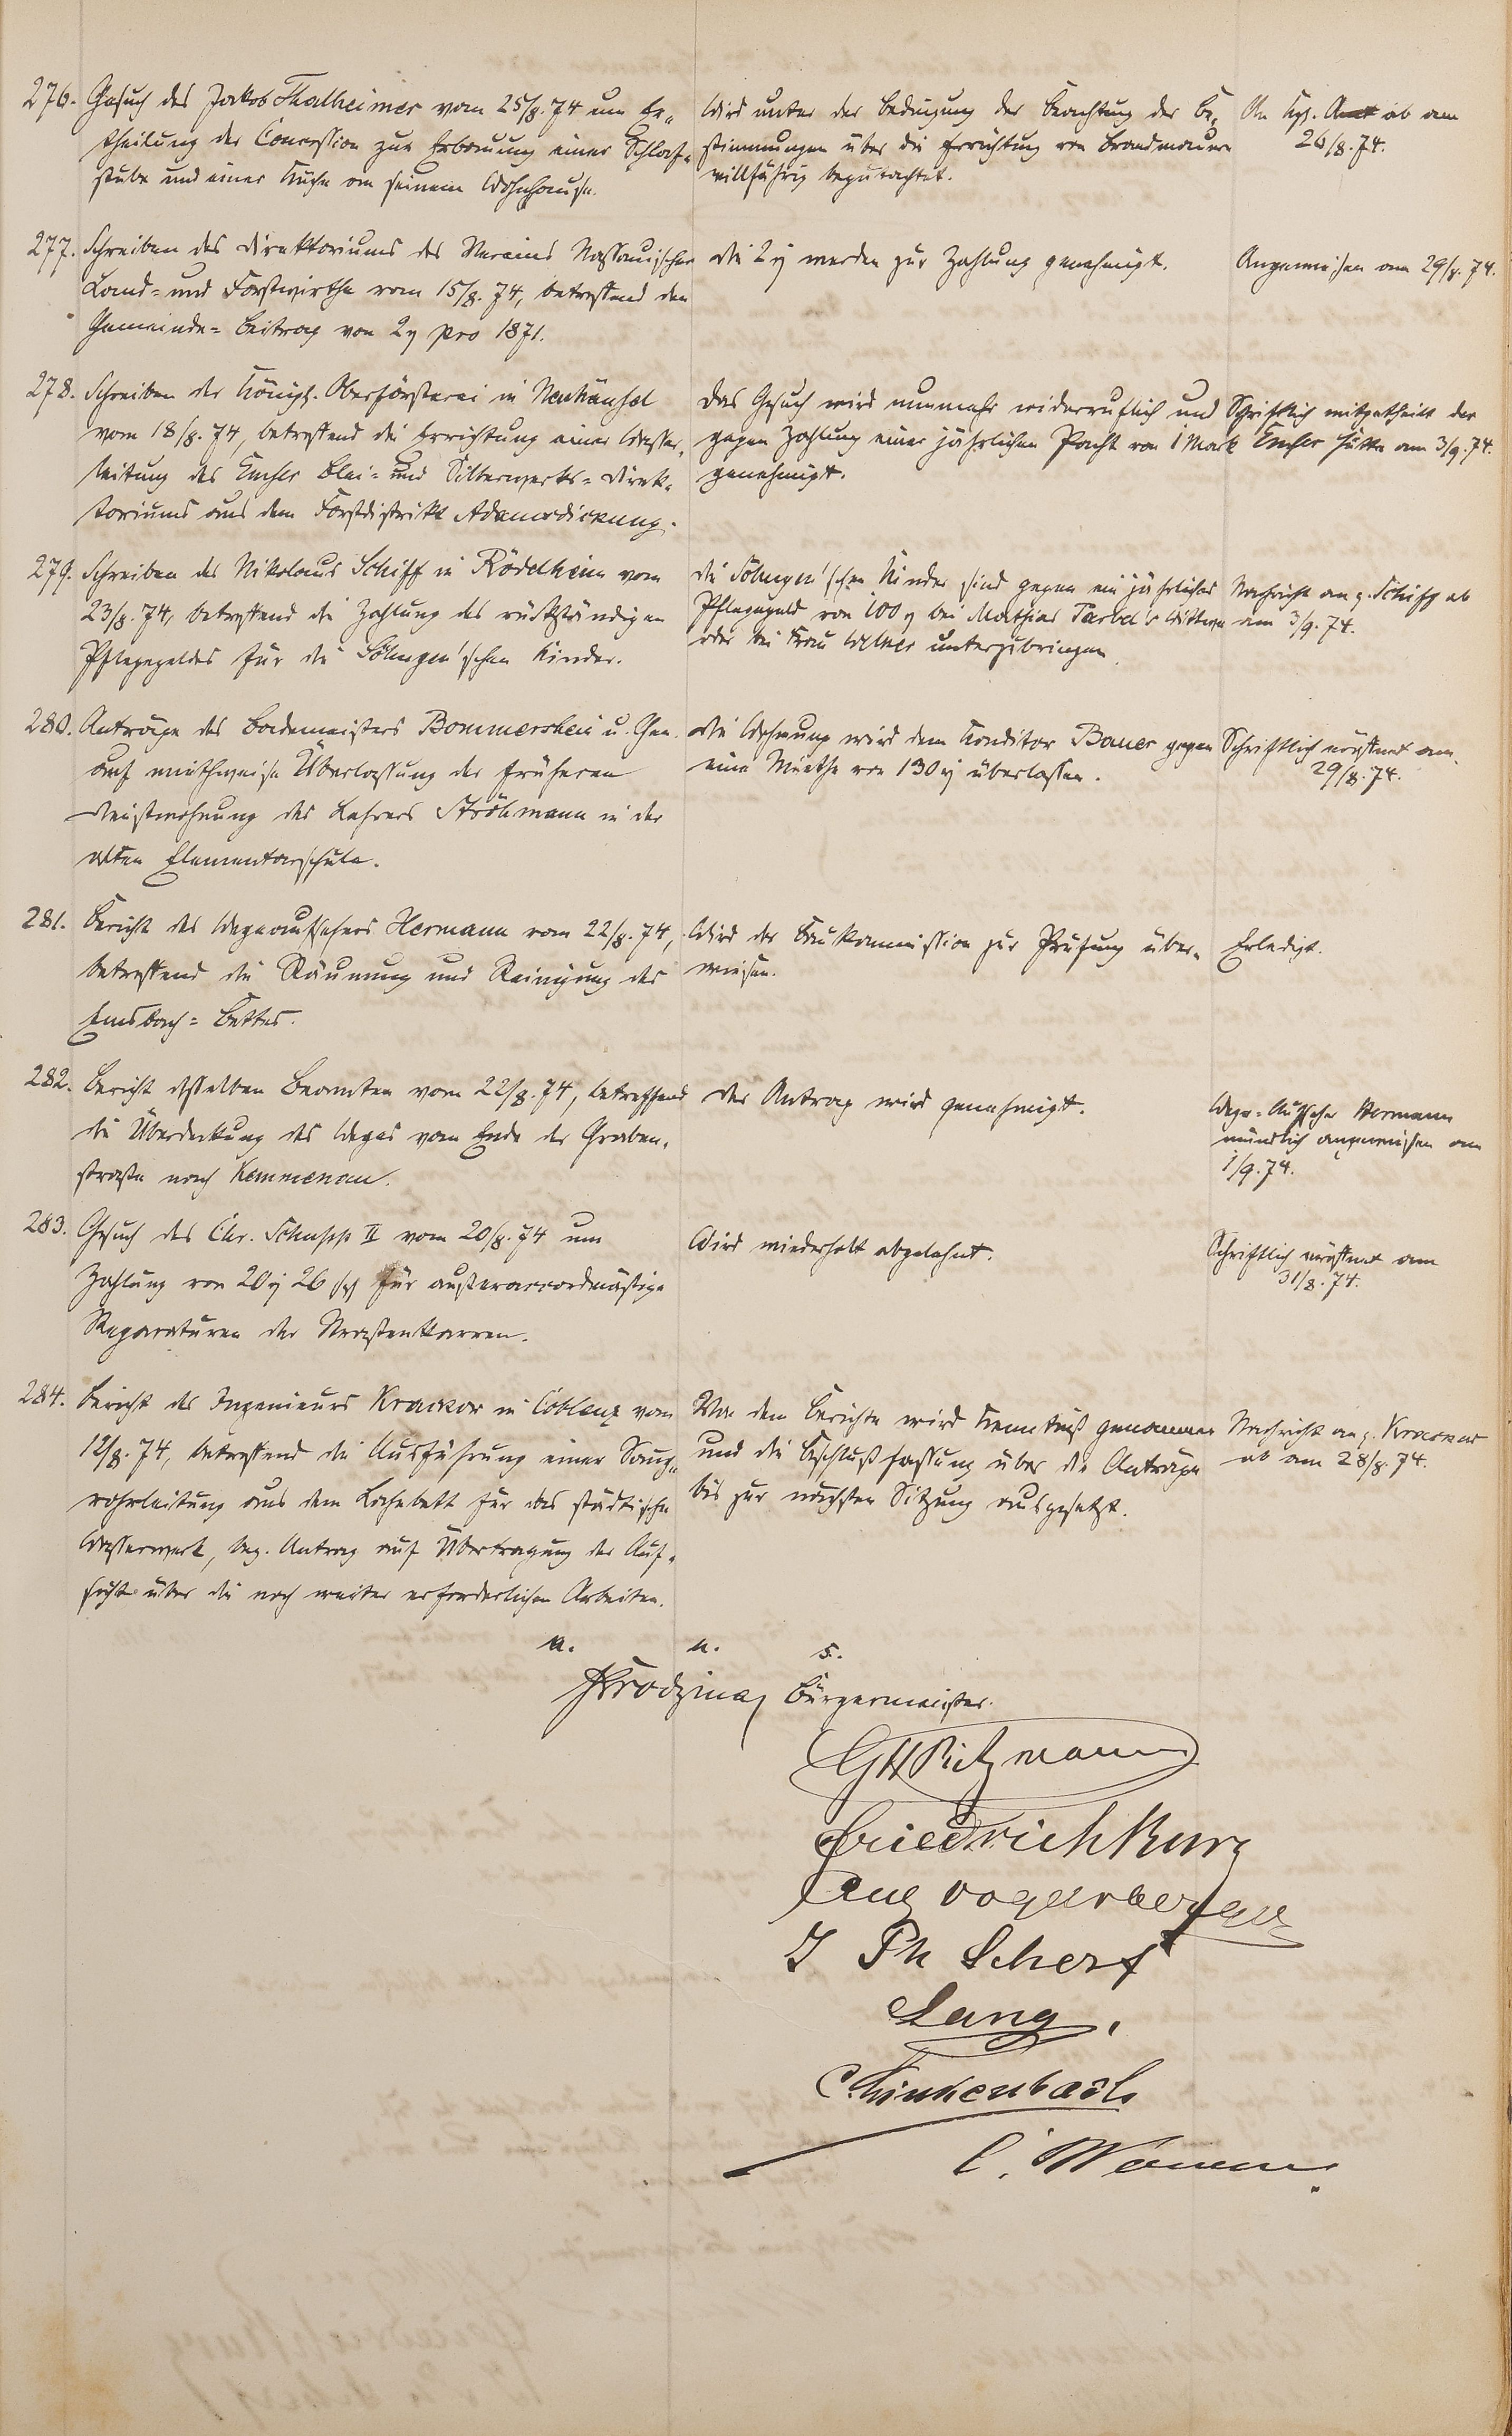 276. Gesuch des Jakob Thalheimer vom 25/8. 74 um Er-
theilung der Concession zur Erbauung einer Schlaf-
stube und einer Küche an seinem Wohnhause.
Wird unter der Bedingung der Beachtung der Be-
stimmungen über die Errichtung von Brandmauern
willfährig begutachtet.
An Kgl. Amt ab am
26/8. 74.
277. Schreiben des Direktoriums des Vereins Nassauischer
Land- und Forstwirthe vom 15/8. 74, betreffend den
Gemeinde-Beitrag von 2 pro 1871.
Die 2 werden zur Zahlung genehmigt.
Angewiesen am 29/8. 74.
278. Schreiben der Königl. Oberförsterei in Neuhäusel
vom 18/8. 74, betreffend die Errichtung einer Wasser-
leitung des Emser Blei- und Silberwerks-Direk-
toriums aus dem Forstdistrikt
Das Gesuch wird nunmehr widerruflich und
gegen Zahlung einer jährlichen Pacht von 1 Mark
genehmigt.
Schriftlich mitgetheilt der
Emser Hütte am 3/9. 74.
279. Schreiben des Nikolaus Schiff in Rödelheim vom
23/8. 74, betreffend die Zahlung des rückständigen
Pflegegeldes für die Söhngen'schen Kinder.
Die Söhngen'schen Kinder sind gegen ein jährliches
Pflegegeld von 100 bei Mathias Wittwe
oder bei Frau unterzubringen.
Nachricht an Schiff ab
am 3/9. 74.
280. Anträge des Bademeisters Bommersheim u. Gen.
auf miethweise Überlassung der früheren
Dienstwohnung des Lehrers Ströhmann in der
alten Elementarschule.
Die Wohnung wird dem Konditor Bauer gegen
eine Miethe von 130 überlassen.
Schriftlich eröffnet am
29/8. 74.
281. Bericht des Wegeaufsehers Hermann vom 22/8. 74,
betreffend die Räumung und Reinigung des
Emsbach-Bettes.
Wird der Baukommission zur Prüfung über-
wiesen.
Erledigt.
282. Bericht desselben Beamten vom 22/8. 74, betreffend
die Überdeckung des Weges vom Ende der Graben-
straße nach Kemmenau.
Der Antrag wird genehmigt.
Wege-Aufseher Hermann
mündlich angewiesen am
1/9. 74.
283. Gesuch des Chr. Schupp II vom 20/8. 74 um
Zahlung von 20 26 für außeraccordmäßige
Reparaturen der Straßenkarren.
Wird wiederholt abgelehnt.
Schriftlich eröffnet am
31/8. 74.
284. Bericht des Ingenieurs Krackow in Coblenz vom
12/8. 74, betreffend die Ausführung einer Saug-
rohrleitung aus dem Lahnbett für das städtische
Wasserwerk, bez. Antrag auf Übertragung der Auf-
sicht über die noch weiter erforderlichen Arbeiten.
Von dem Berichte wird Kenntniß genommen
und die Beschlußfassung über die Anträge
bis zur nächsten Sitzung ausgesetzt.
Nachricht an Krackow
ab am 28/8. 74.
a. u. s.
Bürgermeister.
Friedrich Kurz
Aug Vogelsberger
J Ph Scherf
Lang.
C Linkenbach